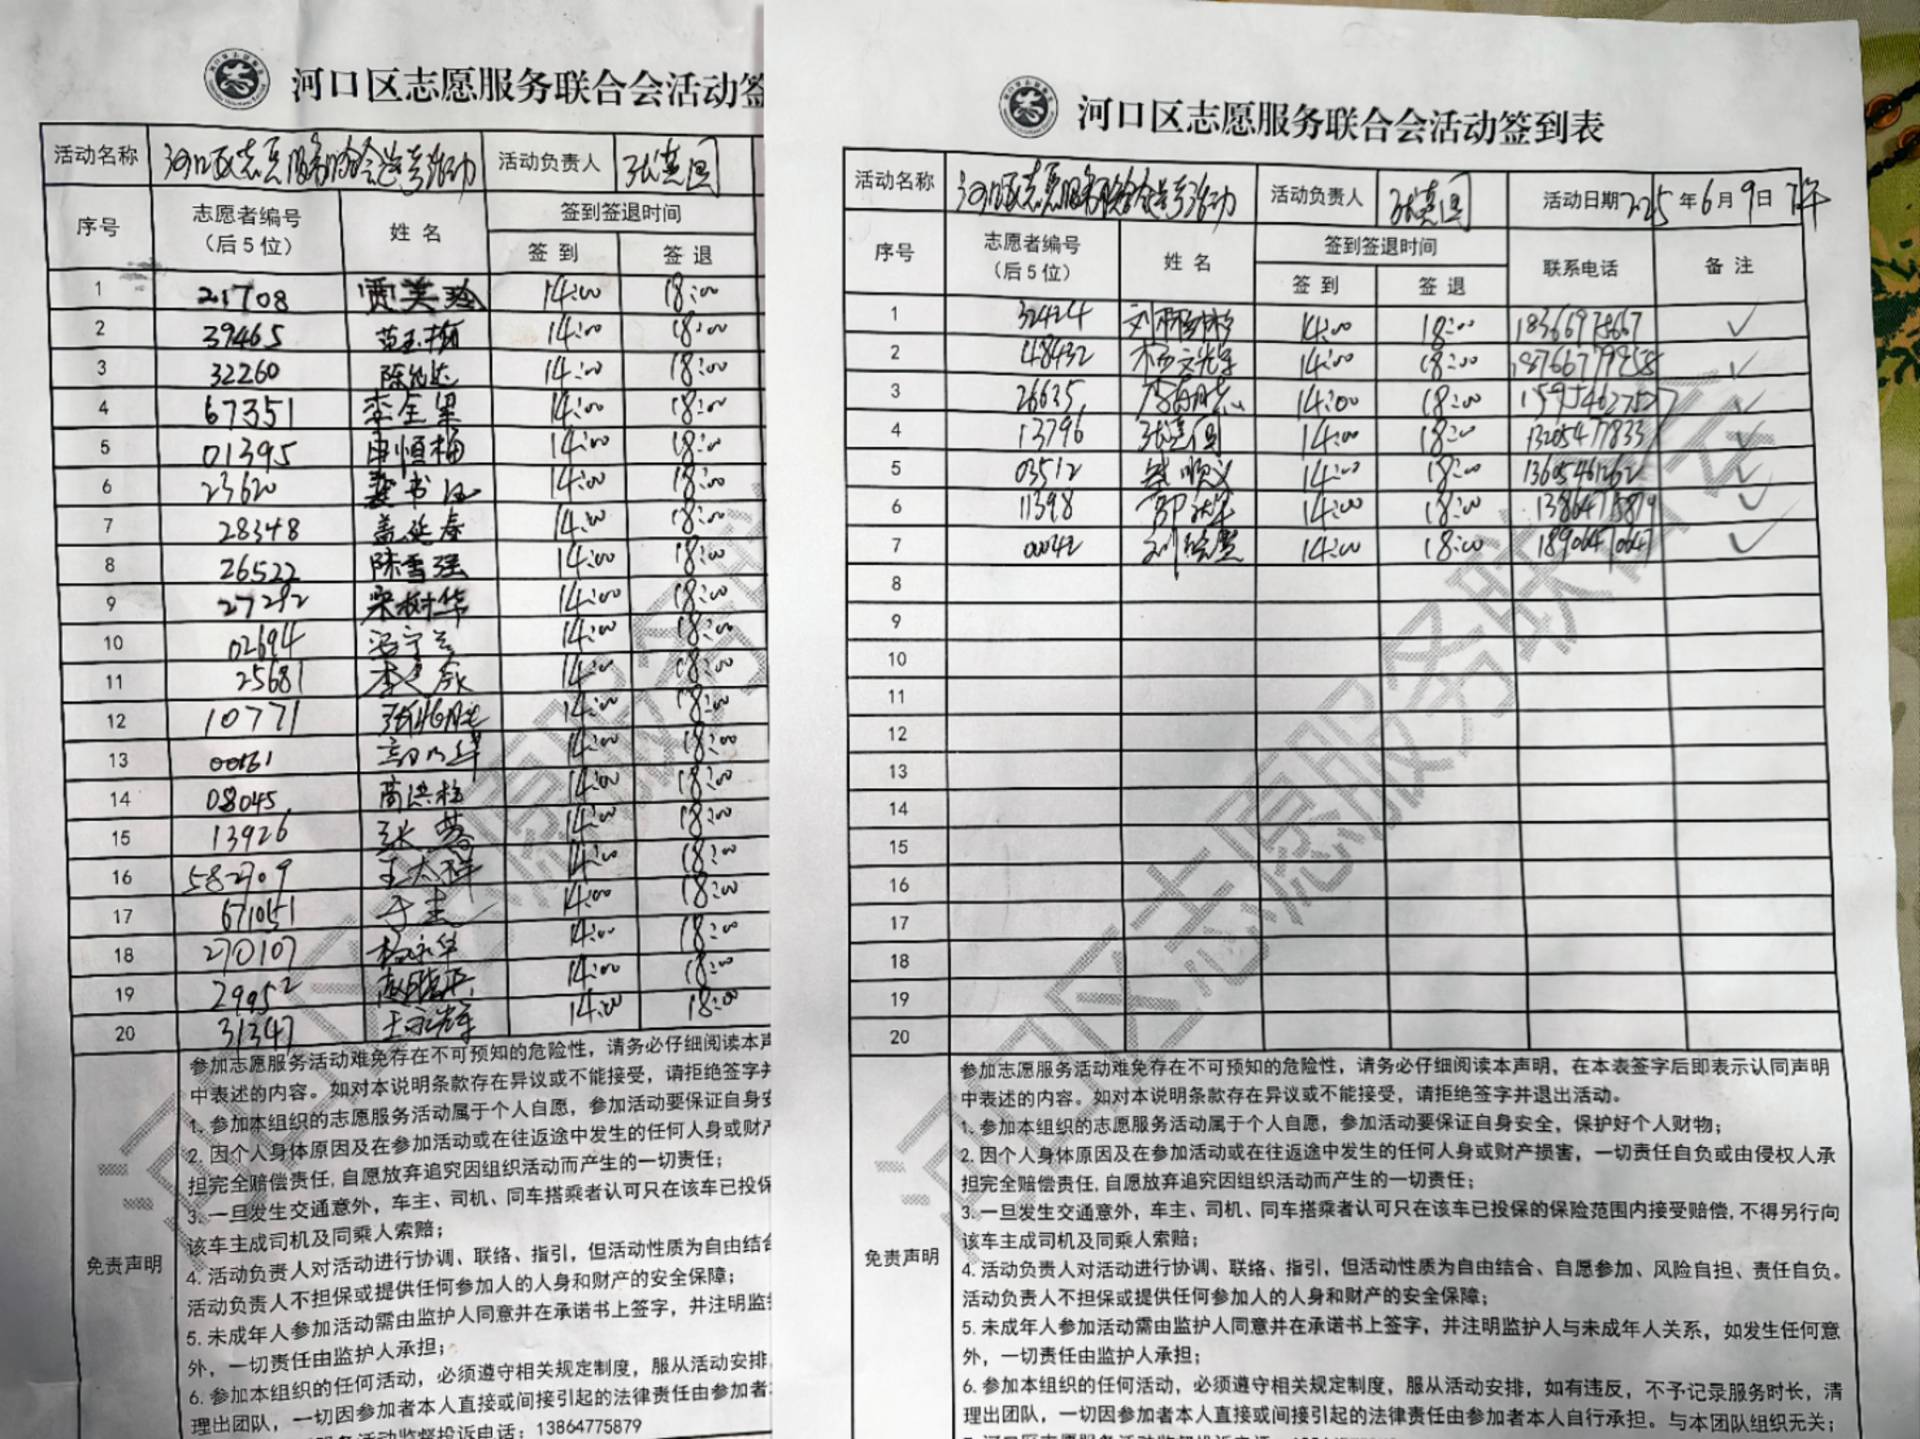 河口区志愿服务联合会活动签
活动名称 河口区志愿服务联合会送考活动 活动负责人
序号 志愿者编号 (后5位) 姓名 签到签退时间
签到 签退
1 21708 贾美玲 14:00 18:00
2 39465 范玉梅 14:00 18:00
3 32260 14:00 18:00
4 67351 李全果 14:00 18:00
5 01395 申恒梅 14:00 18:00
6 23620 14:00 18:00
7 28348 盖延春 14:00 18:00
8 26522 陈雪强 14:00 18:00
9 27292 宋树华 14:00 18:00
10 02694 14:00 18:00
11 25681 14:00 18:00
12 10771 14:00 18:00
13 14:00 18:00
14 08045 14:00 18:00
15 13926 14:00 18:00
16 582709 王太祥 14:00 18:00
17 671051 14:00 18:00
18 270107 14:00 18:00
19 29952 14:00 18:00
20 31347 14:00 18:00
免责声明
参加志愿服务活动难免存在不可预知的危险性，请务必仔细阅读本声
中表述的内容。如对本说明条款存在异议或不能接受，请拒绝签字并
1. 参加本组织的志愿服务活动属于个人自愿，参加活动要保证自身安
2. 因个人身体原因及在参加活动或在往返途中发生的任何人身或财产
担完全赔偿责任,自愿放弃追究因组织活动而产生的一切责任；
3. 一旦发生交通意外，车主、司机、同车搭乘者认可只在该车已投保
该车主成司机及同乘人索赔；
4. 活动负责人对活动进行协调、联络、指引，但活动性质为自由结合
活动负责人不担保或提供任何参加人的人身和财产的安全保障；
5. 未成年人参加活动需由监护人同意并在承诺书上签字，并注明监护
外，一切责任由监护人承担；
6. 参加本组织的任何活动，必须遵守相关规定制度，服从活动安排，
理出团队，一切因参加者本人直接或间接引起的法律责任由参加者本
服务活动监督投诉电话：13864775879
河口区志愿服务联合会活动签到表
活动名称 河口区志愿服务联合会送考活动 活动负责人 活动日期 2025 年 6 月 9 日 下午
序号 志愿者编号 (后5位) 姓名 签到签退时间 联系电话 备注
签到 签退
1 32424 14:00 18:00 ✓
2 48432 14:00 18:00 ✓
3 26635 14:00 18:00 ✓
4 13796 14:00 18:00 ✓
5 03512 14:00 18:00 ✓
6 11398 14:00 18:00 ✓
7 00042 14:00 18:00 ✓
8
9
10
11
12
13
14
15
16
17
18
19
20
免责声明
参加志愿服务活动难免存在不可预知的危险性，请务必仔细阅读本声明，在本表签字后即表示认同声明
中表述的内容。如对本说明条款存在异议或不能接受，请拒绝签字并退出活动。
1. 参加本组织的志愿服务活动属于个人自愿，参加活动要保证自身安全，保护好个人财物；
2. 因个人身体原因及在参加活动或在往返途中发生的任何人身或财产损害，一切责任自负或由侵权人承
担完全赔偿责任,自愿放弃追究因组织活动而产生的一切责任；
3. 一旦发生交通意外，车主、司机、同车搭乘者认可只在该车已投保的保险范围内接受赔偿,不得另行向
该车主成司机及同乘人索赔；
4. 活动负责人对活动进行协调、联络、指引，但活动性质为自由结合、自愿参加、风险自担、责任自负。
活动负责人不担保或提供任何参加人的人身和财产的安全保障；
5. 未成年人参加活动需由监护人同意并在承诺书上签字，并注明监护人与未成年人关系，如发生任何意
外，一切责任由监护人承担；
6. 参加本组织的任何活动，必须遵守相关规定制度，服从活动安排，如有违反，不予记录服务时长，清
理出团队，一切因参加者本人直接或间接引起的法律责任由参加者本人自行承担。与本团队组织无关；